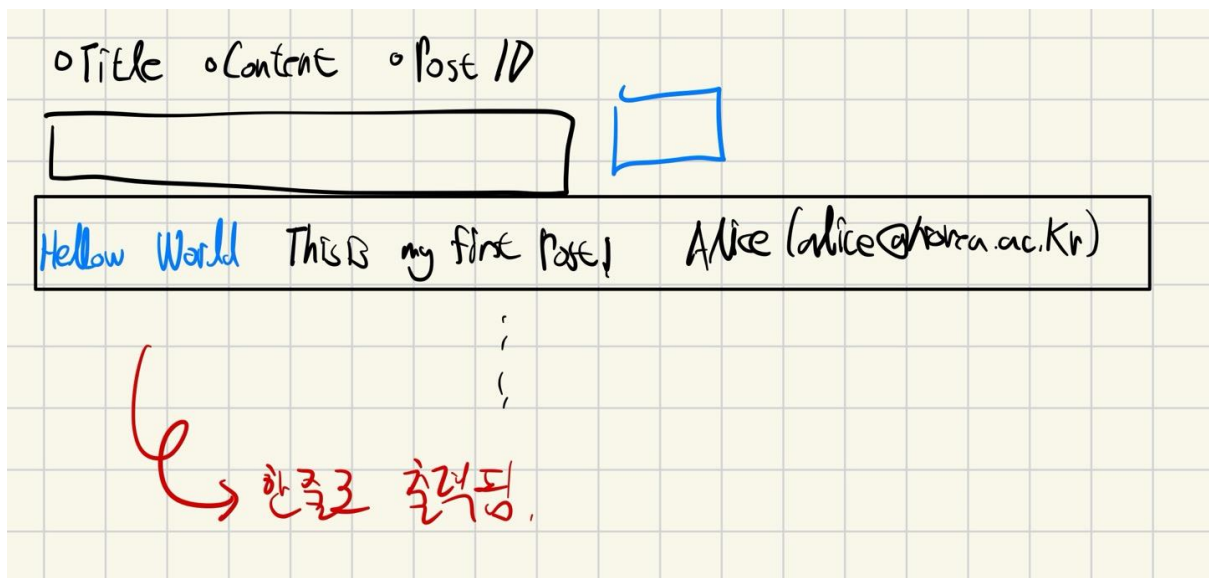 Title Content Post ID
Hellow World This is my first Post! Alice (alice@korea.ac.kr)
한줄로 출력됨.